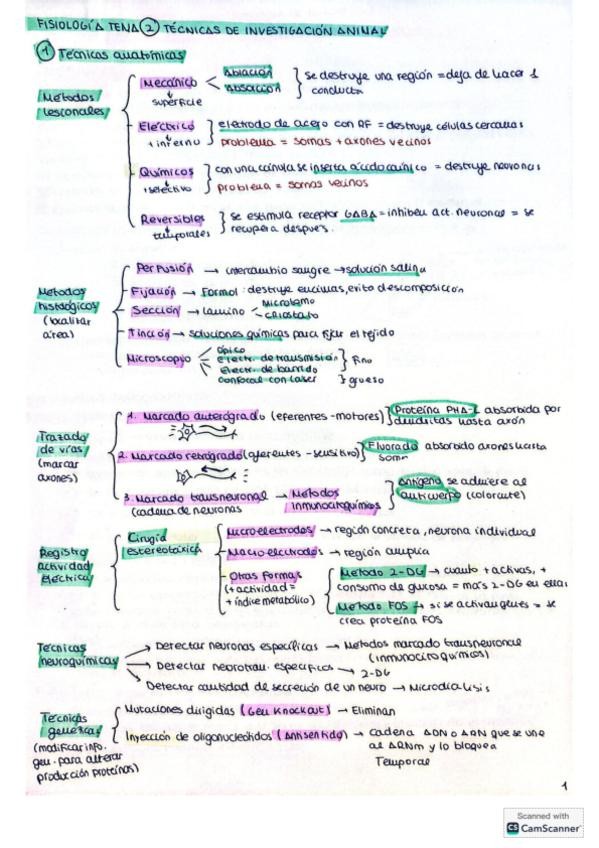 FISIOLOGÍA TEMA 2 TÉCNICAS DE INVESTIGACIÓN ANIMAL
1 Técnicas anatómicas
Métodos lesionales
Mecánico
superficie
Ablación
se destruye una región = deja de hacer 1 conducta
Eléctrico
+ interno
eletrodo de acero con RF = destruye células cercanas
problema = somas + axones vecinos
Químicos
+ selectivo
con una cánula se inserta ácido caínico = destruye neuronas
problema = somas vecinos
Reversibles
temporales
se estimula receptor GABA = inhiben act. neuronas = se recupera después.
Métodos histológicos
(localizar área)
Perfusión → intercambio sangre → solución salina
Fijación → Formol: destruye encimas, evita descomposición
Sección → lamino
Microtomo
criostato
Tinción → soluciones químicas para fijar el tejido
Microscopio
óptico
electr. de transmisión
electr. de barrido
fino
confocal con laser
grueso
Trazado de vías
(marcar axones)
1. Marcado anterógrado (eferentes - motores)
Proteína PHA-L absorbida por dendritas hasta axón
2. Marcado retrógrado (aferentes - sensitivo)
absorbido axones hasta soma
3. Marcado transneuronal → Métodos inmunocitoquímicos
(cadena de neuronas
Antígeno se adhiere al anticuerpo (colorante)
Registro actividad eléctrica
Cirugía estereotáxica
Microelectrodos → región concreta, neurona individual
Macroelectrodos → región amplia
Otras formas
(+ actividad = + índice metabólico)
Método 2-DG → cuanto + activas, + consumo de glucosa = más 2-DG en ellas
Método FOS → si se activan = se crea proteína FOS
Técnicas neuroquímicas
Detectar neuronas específicas → Métodos marcado transneuronal (inmunocitoquímicos)
Detectar neurotran. específicos → 2-DG
Detectar cantidad de secreción de un neuro → Microdiálisis
Técnicas genéticas
(modificar info. gen. para alterar producción proteínas)
Mutaciones dirigidas (Gen Knockout) → Eliminan
Inyección de oligonucleótidos (Antisentido) → Cadena ADN o ARN que se une al ARNm y lo bloquea Temporal
1
Scanned with
CS CamScanner